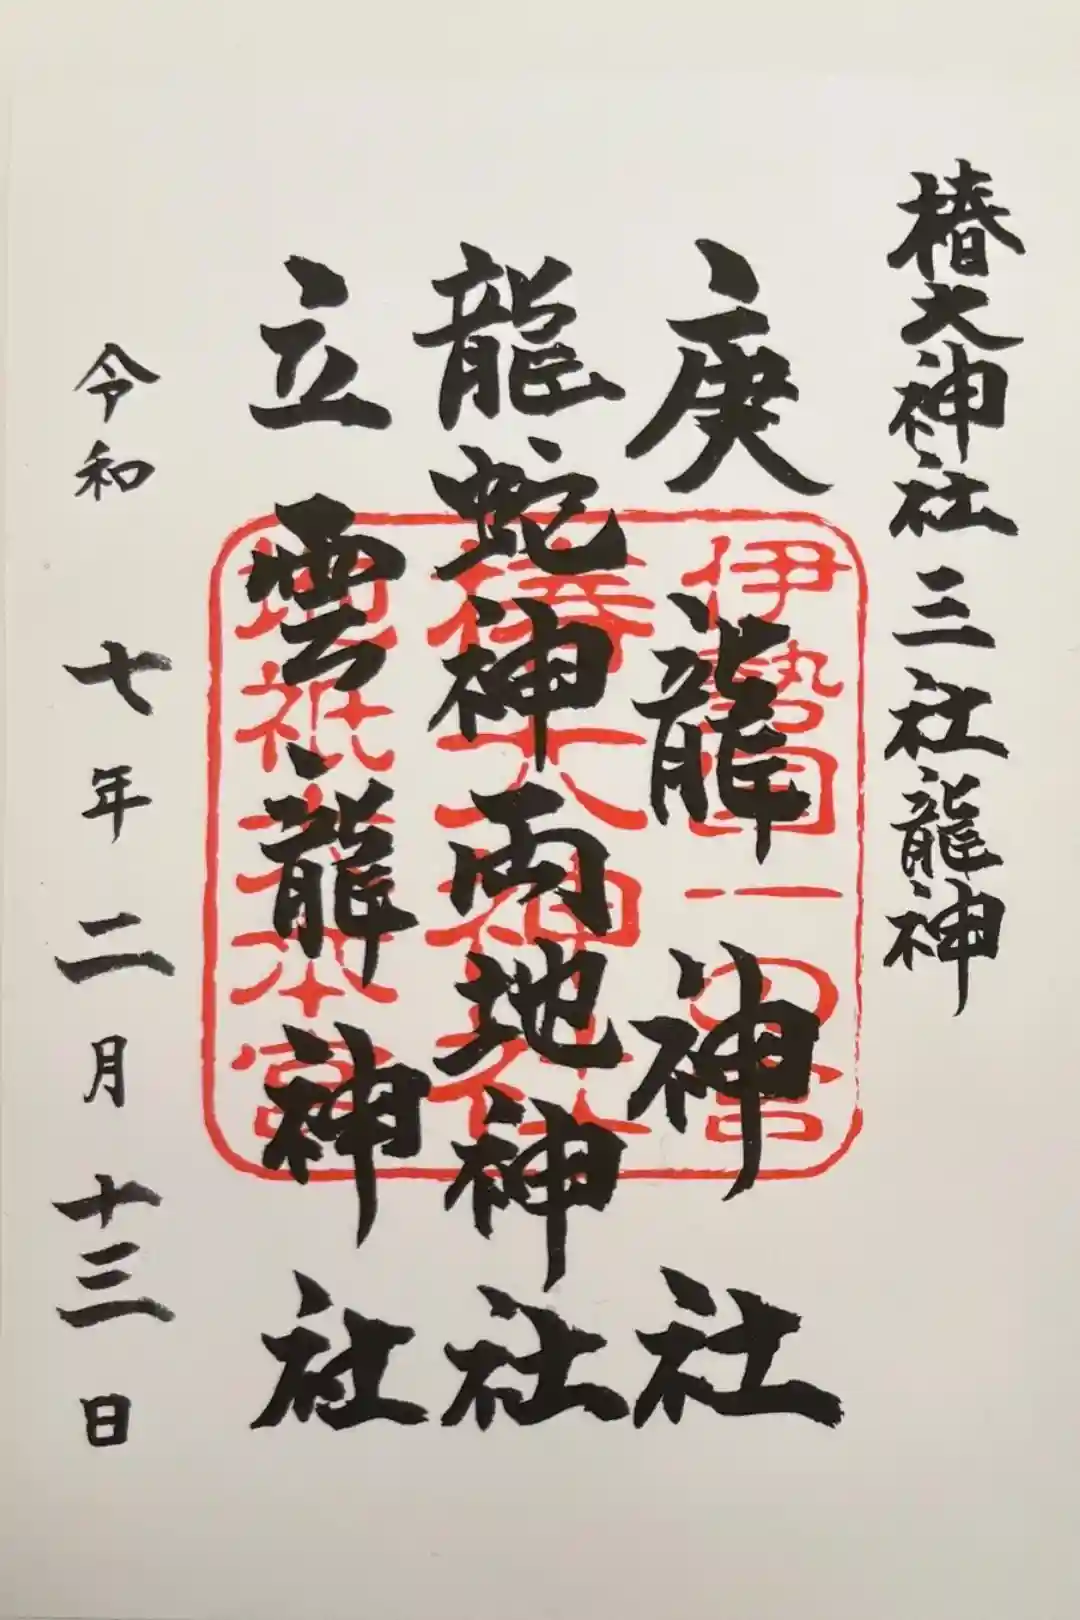 椿大神社 三社龍神
庚龍神社
龍蛇神両地神社
立雲龍神社
令和七年二月十三日
伊勢国一の宮
椿大神社
地祇大本宮